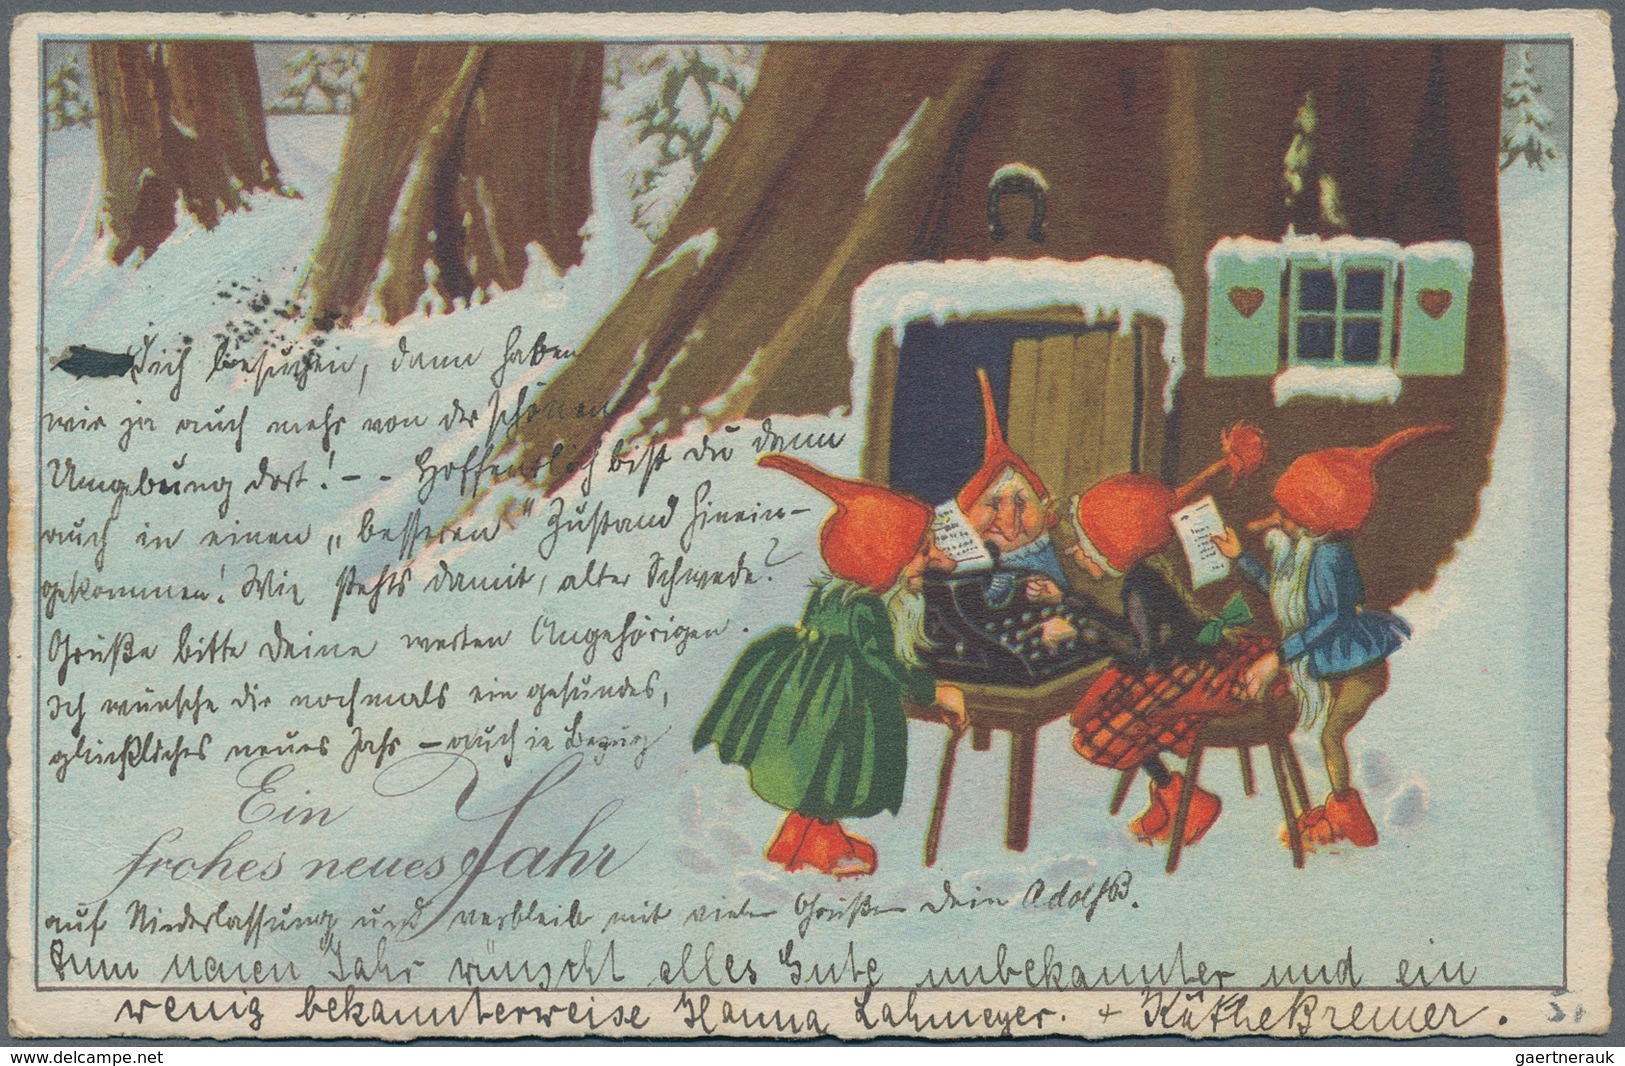 Dich besuchen, dann haben
wir ja auch mehr von der schönen
Umgebung dort! - - Hoffentlich bist du dann
auch in einen „besseren" Zustand hinein-
gekommen! Wie stehts damit, alter Schwede?
Grüße bitte Deine werten Angehörigen.
Ich wünsche dir nochmals ein gesundes,
glückliches neues Jahr – auch in Bezug
Ein
frohes neues Jahr
auf Niederlassung und verbleib mit vielen Grüßen Dein Adolf B.
Zum neuen Jahr wünscht alles Gute unbekannter und ein
wenig bekannterweise Hanna Lahmeyer. + Käthe Bremer.
www.delcampe.net
gaertnerauk